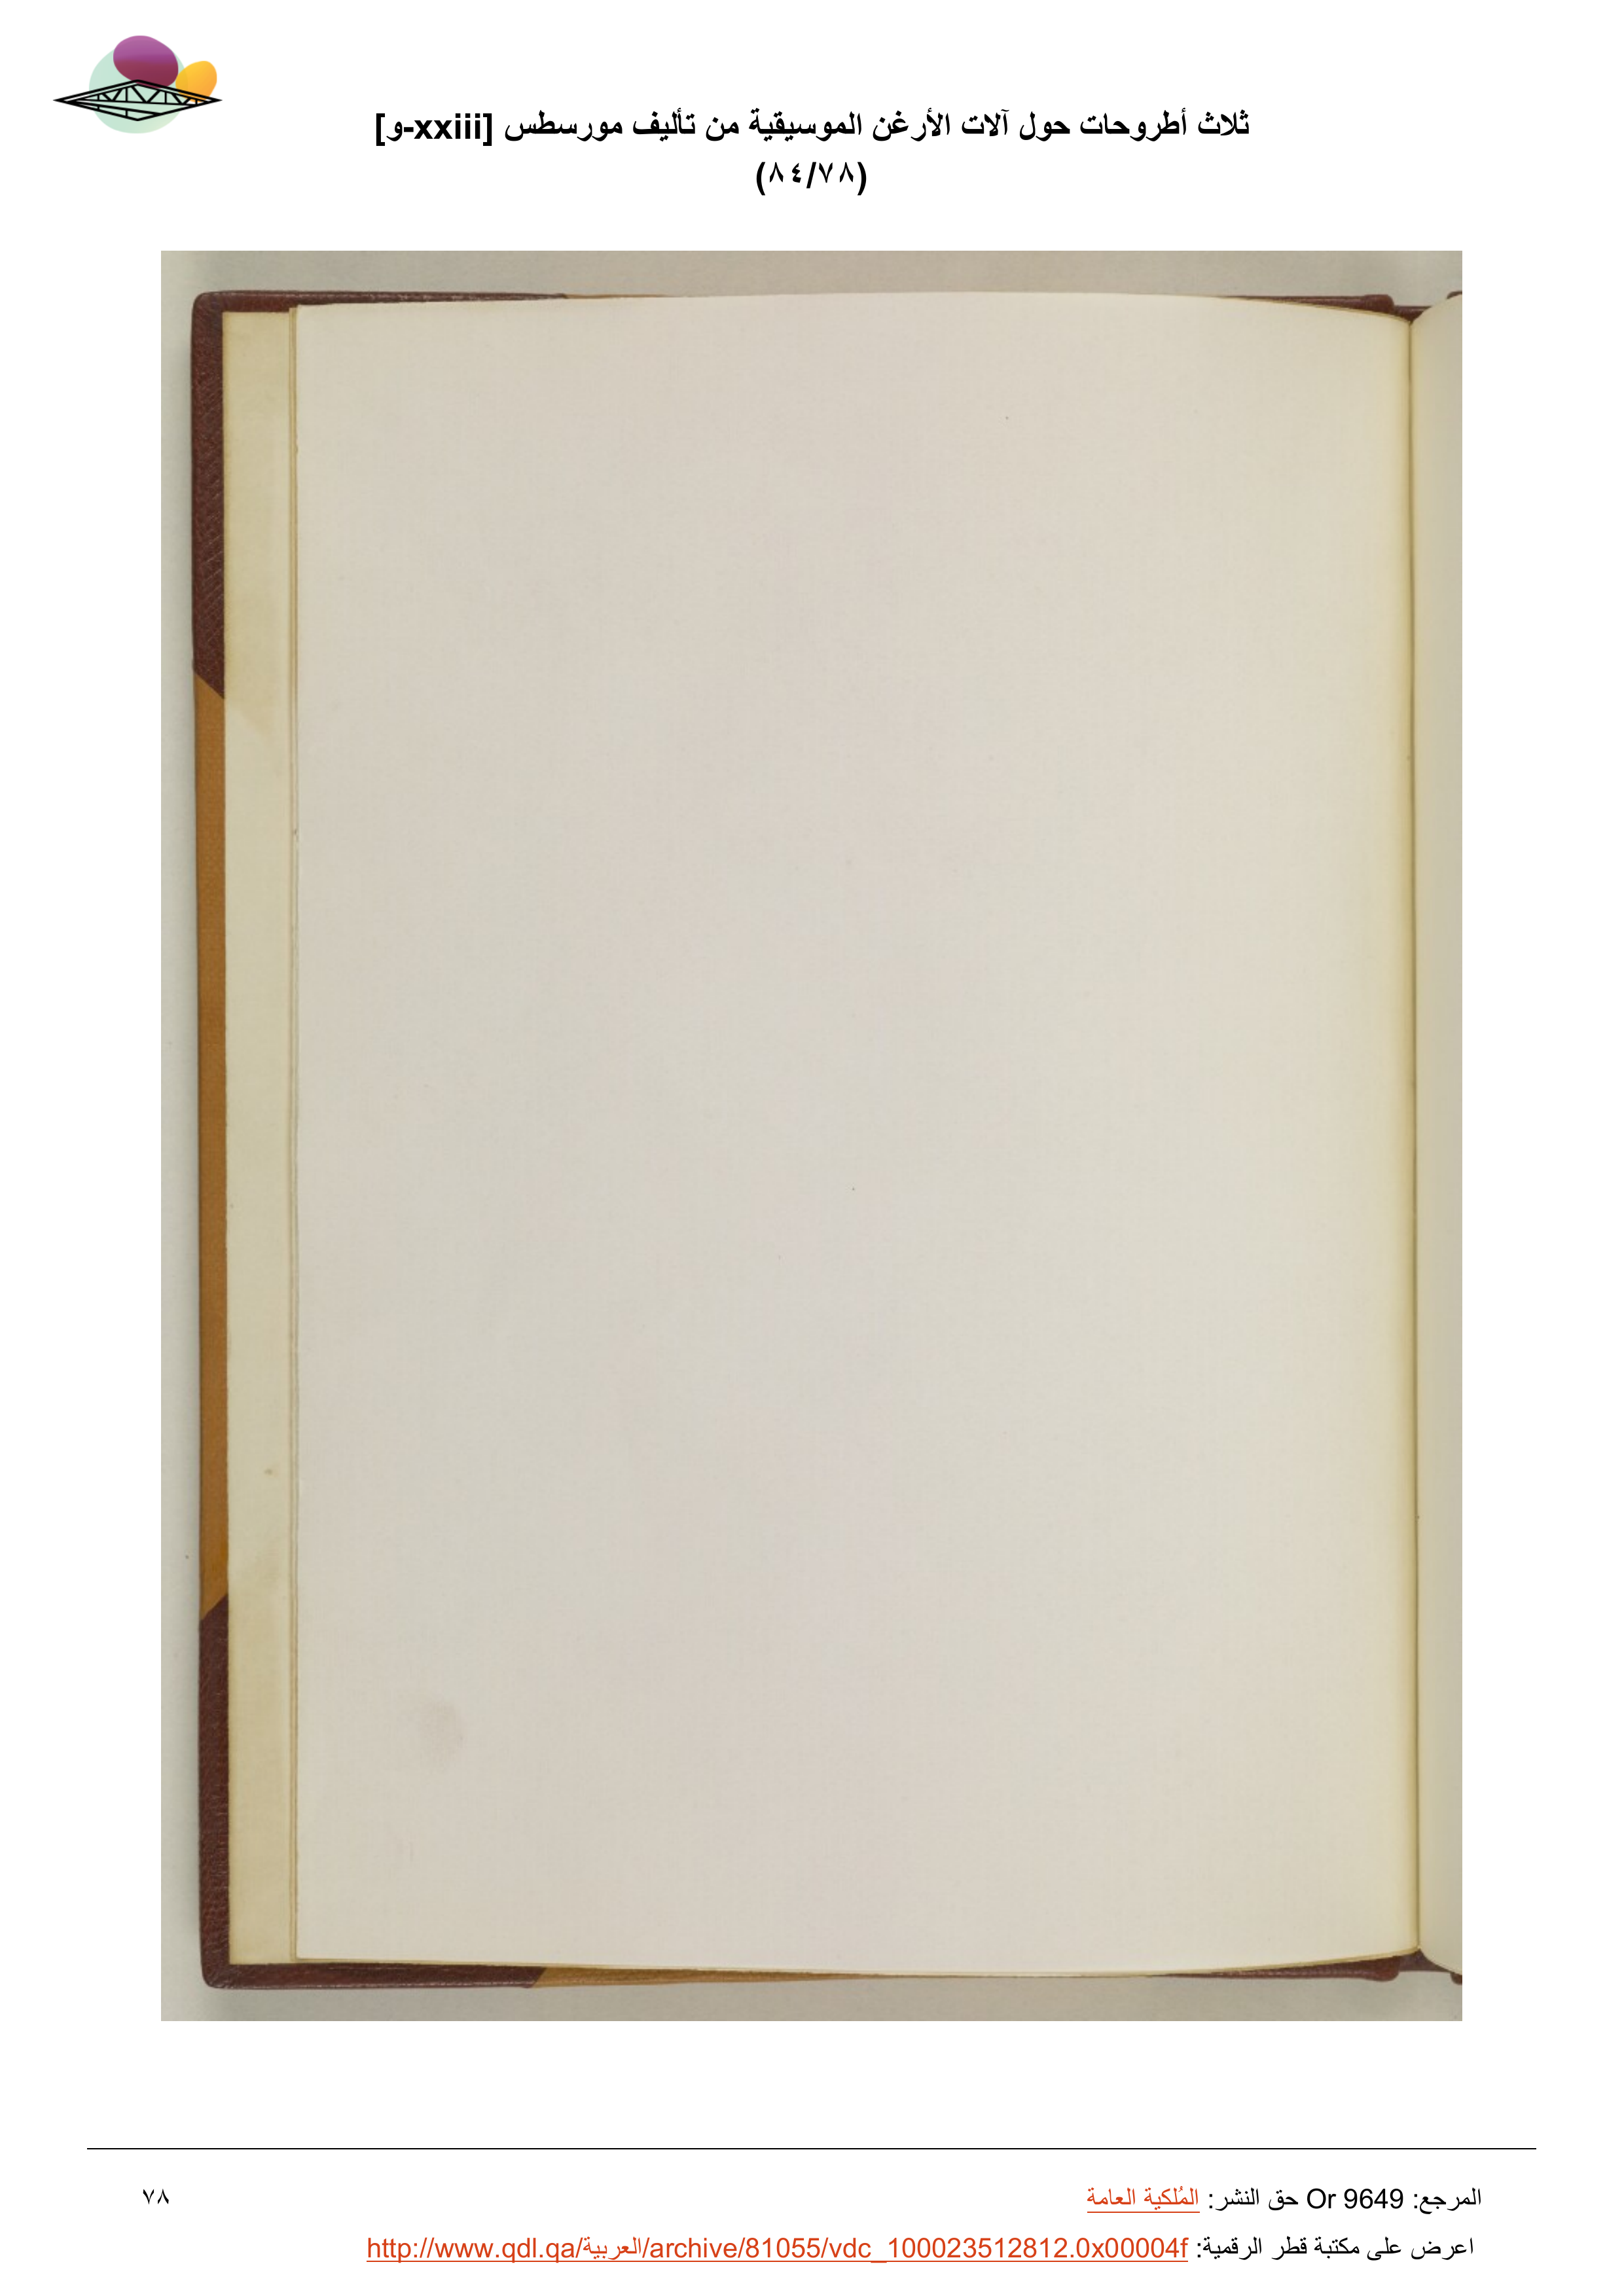 ثلاث أطروحات حول آلات الأرغن الموسيقية من تأليف مورسطس [xxiii-و]
(٨٤/٧٨)
المرجع: Or 9649 حق النشر: المُلكية العامة
٧٨
اعرض على مكتبة قطر الرقمية: http://www.qdl.qa/العربية/archive/81055/vdc_100023512812.0x00004f